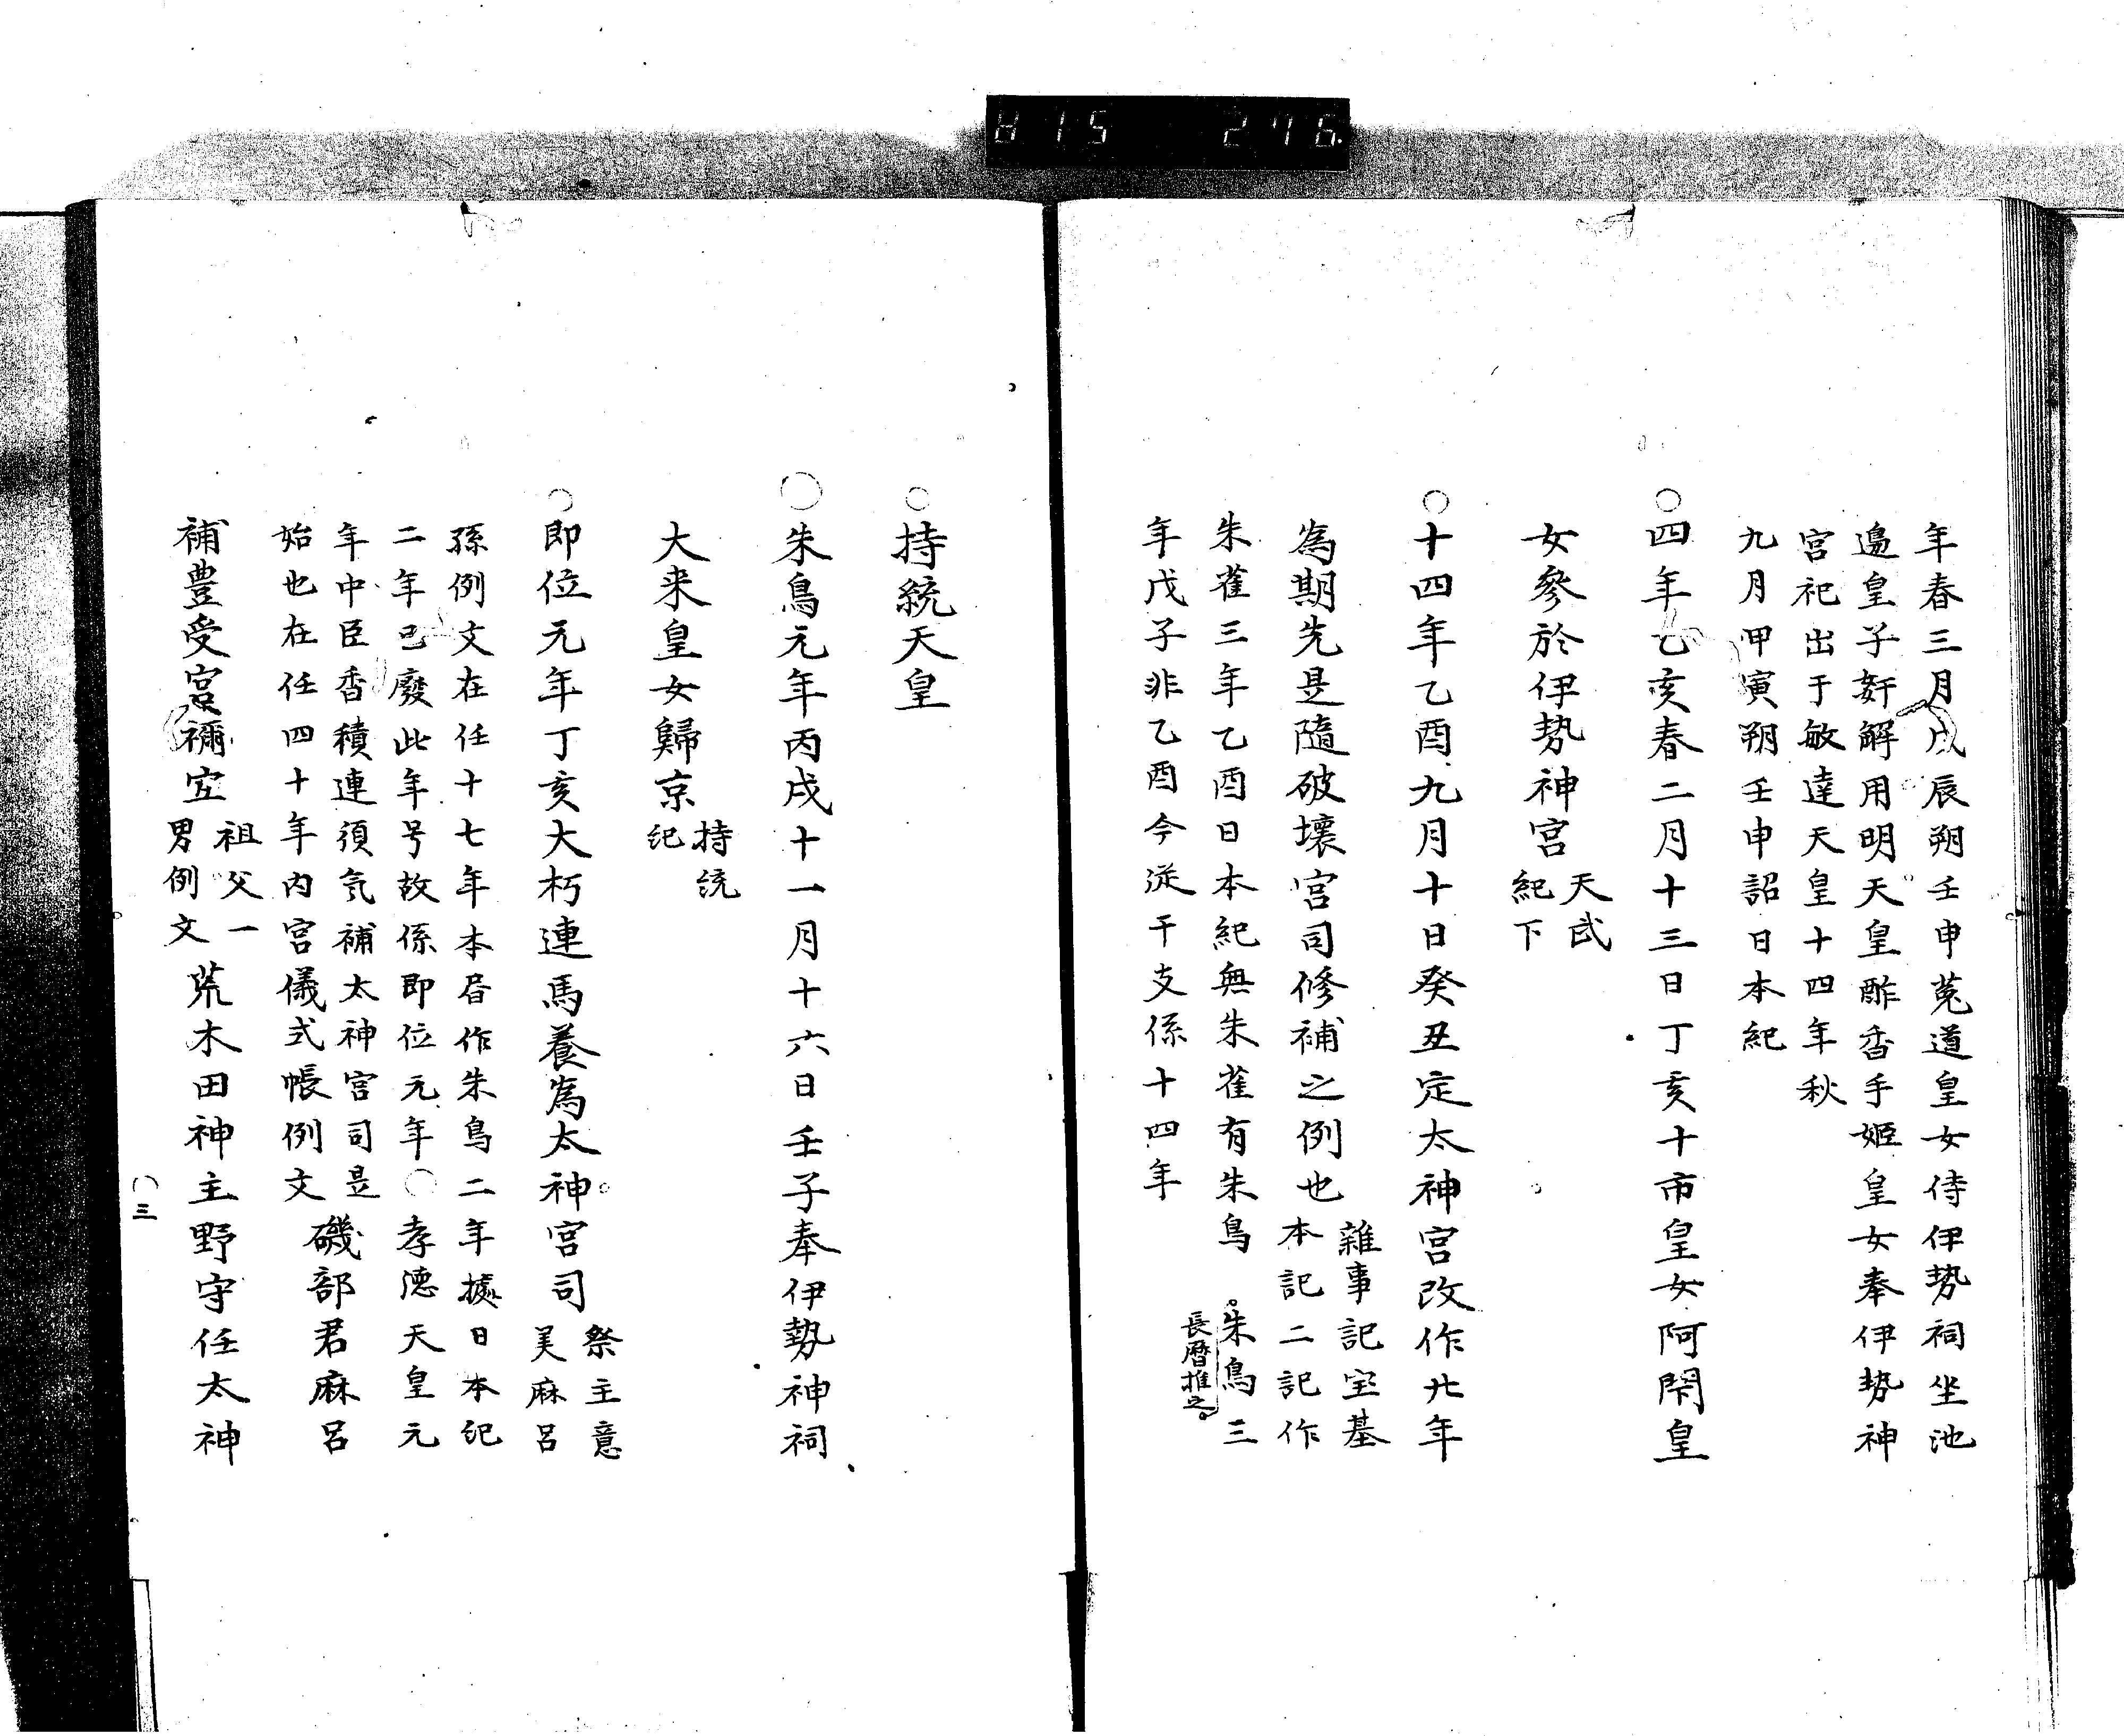 815 276.
年春三月戊辰朔壬申菟道皇女侍伊勢祠坐池
邉皇子姧解用明天皇酢香手姫皇女奉伊勢神
宮祀出于敏達天皇十四年秋
九月甲寅朔壬申詔日本紀
○四年乙亥春二月十三日丁亥十市皇女阿閇皇
女參於伊勢神宮 天武
紀下
○十四年乙酉九月十日癸丑定太神宮改作廿年
為期先是隨破壞宮司修補之例也 雜事記宝基
本記二記作
朱雀三年乙酉日本紀無朱雀有朱鳥 朱鳥三
長曆推之
年戊子非乙酉今従干支係十四年
○持統天皇
○朱鳥元年丙戌十一月十六日壬子奉伊勢神祠
大来皇女歸京 持統
紀
○即位元年丁亥大朽連馬養為太神宮司 祭主意
美麻呂
孫例文在任十七年本居作朱鳥二年據日本紀
二年已廢此年号故係即位元年○孝德天皇元
年中臣香積連須氣補太神宮司是
始也在任四十年內宮儀式帳例文
磯部君麻呂
補豊受宮禰宜 祖父一
男例文 荒木田神主野守任太神
○三